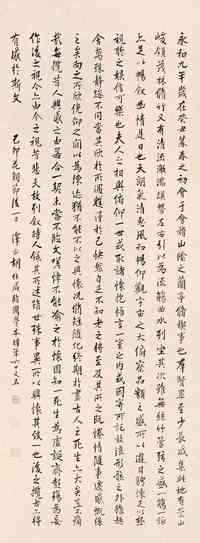 永和九年歲在癸丑暮春之初會于會稽山陰之蘭亭脩禊事也群賢畢至少長咸集此地有崇山
峻領茂林脩竹又有清流激湍映帶左右引以為流觴曲水列坐其次雖無絲竹管弦之盛一觴一詠
亦足以暢敘幽情是日也天朗氣清惠風和暢仰觀宇宙之大俯察品類之盛所以遊目騁懷足以極
視聽之娛信可樂也夫人之相與俯仰一世或取諸懷抱悟言一室之內或因寄所託放浪形骸之外雖趣
舍萬殊靜躁不同當其欣於所遇暫得於己快然自足不知老之將至及其所之既惓情隨事遷感慨係
之矣向之所欣俛仰之間以為陳迹猶不能不以之興懷況脩短隨化終期於盡古人云死生亦大矣豈不痛
哉每攬昔人興感之由若合一契未嘗不臨文嗟悼不能喻之於懷固知一死生為虛誕齊彭殤為妄
作後之視今亦由今之視昔悲夫故列敘時人錄其所述雖世殊事異所以興懷其致一也後之攬者亦將
有感於斯文 己卯花朝後一日